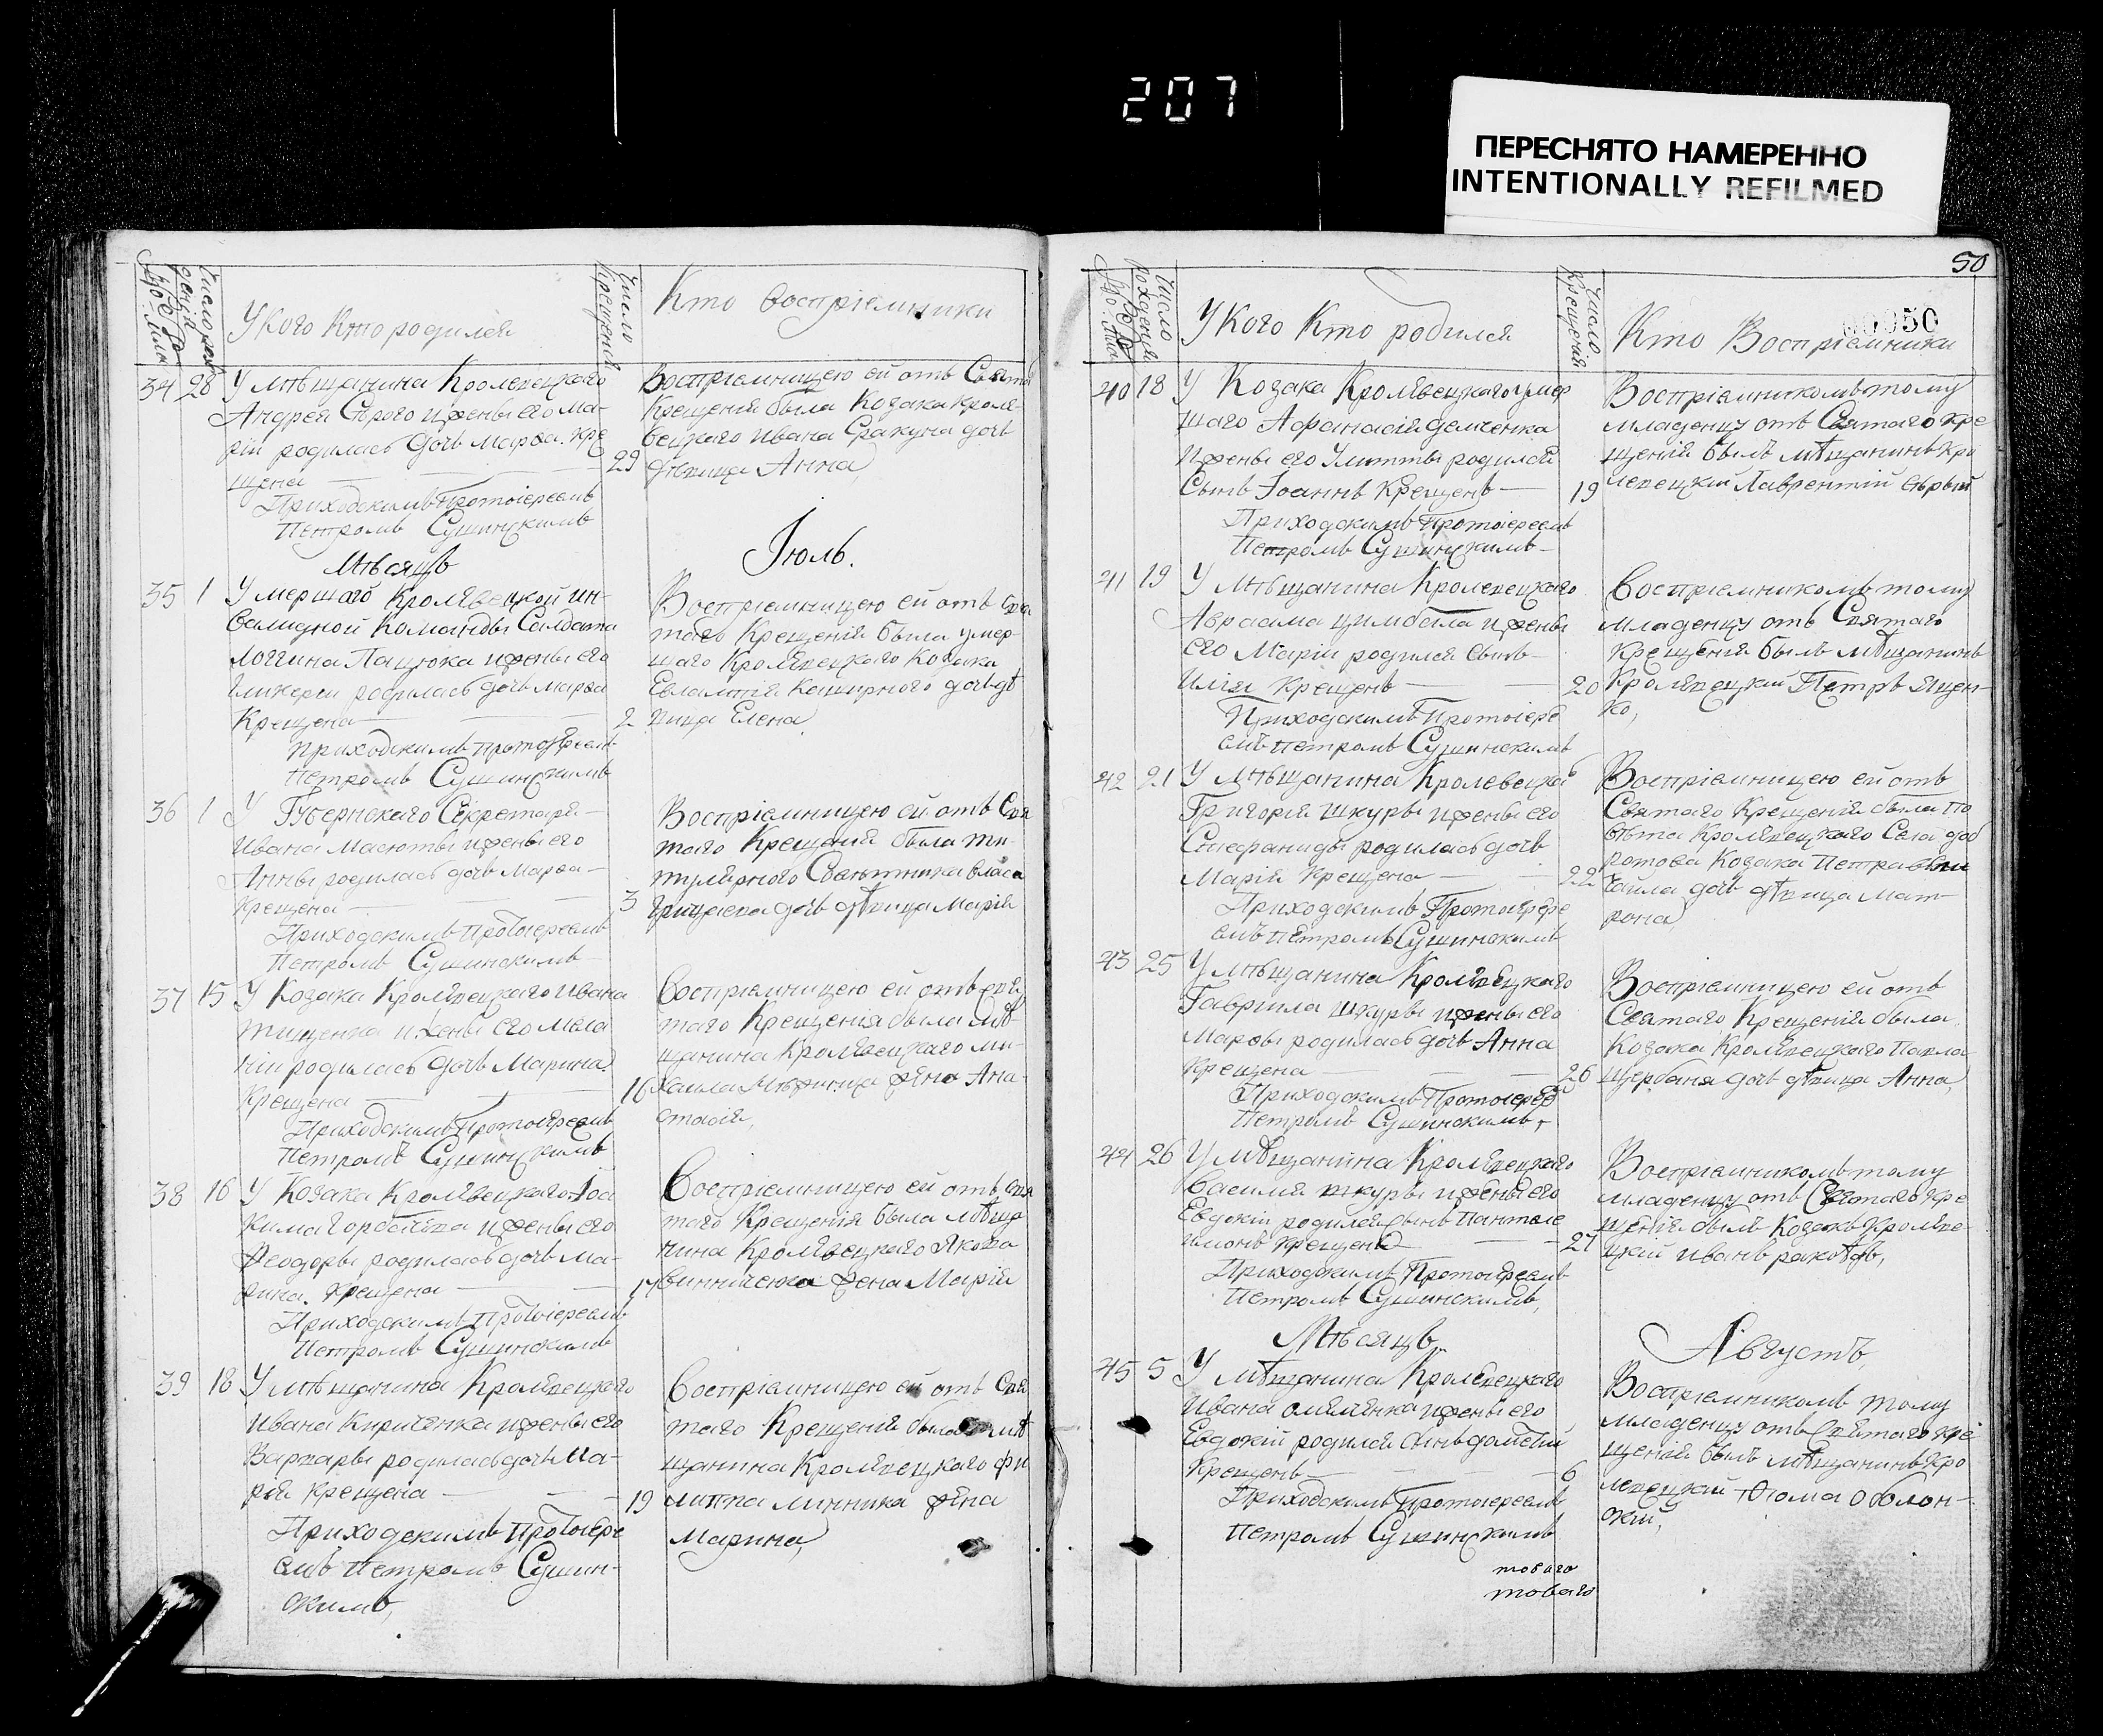 207
ПЕРЕСНЯТО НАМЕРЕННО
INTENTIONALLY REFILMED
У Кого Кто родился
Кто воспріемники
34 28 У мѣщанина Кролевецкаго
Андрея Сѣраго и жены его Ма-
ріи родилась дочь Марѳа. Кре
щена 29
Приходскимъ Протоіереемъ
Петромъ Сушинскимъ
Воспріемницею ей отъ Святаго
Крещенія была Козака Кроле-
вецкаго Ивана Сракуна дочь
дѣвица Анна,
Мѣсяцъ
Іюль.
35 1 Умершаго Кролевецкой ин-
валидной Команды Солдата
Логгина Пацюка и жены его
Гликеріи родилась дочь Марѳа
Крещена 2
Приходскимъ Протоіереемъ
Петромъ Сушинскимъ
Воспріемницею ей отъ Свя
таго Крещенія была умер-
шаго Кролевецкаго Козака
Евлампія Каширного дочь дѣ
вица Елена,
36 1 У Губернскаго Секретаря
Ивана Масюты и жены его
Анны родилась дочь Марѳа
Крещена 3
Приходскимъ Протоіереемъ
Петромъ Сушинскимъ
Воспріемницею ей отъ Свя
таго Крещенія была ти-
тулярного Совѣтника Власа
дочь дѣвица Марія
37 15 У Козака Кролевецкаго Ивана
Тищенка и жены его Мела
ніи родилась дочь Марина
Крещена 16
Приходскимъ Протоіереемъ
Петромъ Сушинскимъ
Воспріемницею ей отъ Свя
таго Крещенія была мѣ-
щанина Кролевецкаго Ми-
хаила жена Ана-
стасія,
38 16 У Козака Кролевецкаго Іоа
кима Горбаня и жены его
Ѳеодоры родилась дочь Ма-
рина. Крещена 17
Приходскимъ Протоіереемъ
Петромъ Сушинскимъ
Воспріемницею ей отъ Свя
таго Крещенія была мѣща
нина Кролевецкаго Якова
Винниченка жена Марія
39 18 У мѣщанина Кролевецкаго
Ивана Кириченка и жены его
Варвары родилась дочь Ма-
рія Крещена 19
Приходскимъ Протоіере
емъ Петромъ Сушин-
скимъ,
Воспріемницею ей отъ Свя
таго Крещенія была мѣ
щанина Кролевецкаго Фи
липпа Линника жена
Марина,
50
00050
У Кого Кто родился
Кто Воспріемники
40 18 У Козака Кролевецкаго умер
шаго Афанасія Демченка
и жены его Улитты родился
Сынъ Іоаннъ Крещенъ 19
Приходскимъ Протоіереемъ
Петромъ Сушинскимъ
Воспріемникомъ тому
младенцу отъ Святаго Кре
щенія былъ мѣщанинъ Кро
левецкій Лаврентій Сѣрый
41 19 У мѣщанина Кролевецкаго
Авраама Цимбала и жены
его Маріи родился Сынъ
Илія Крещенъ 20
Приходскимъ Протоіере
емъ Петромъ Сушинскимъ
Воспріемникомъ тому
младенцу отъ Святаго
Крещенія былъ мѣщанинъ
Кролевецкій Петръ Яцен-
ко,
42 21 У мѣщанина Кролевецкаго
Григорія Шкуры и жены его
Стефаниды родилась дочь
Марія Крещена 22
Приходскимъ Протоіере
емъ Петромъ Сушинскимъ
Воспріемницею ей отъ
Святаго Крещенія была По
вѣта Кролевецкаго Села доб
ротова Козака Петра
дочь дѣвица Мат-
рона,
43 25 У мѣщанина Кролевецкаго
Гавриила Шкуры и жены его
Марѳы родилась дочь Анна
Крещена 26
Приходскимъ Протоіерее
Петромъ Сушинскимъ,
Воспріемницею ей отъ
Святаго Крещенія была
Козака Кролевецкаго Павла
Щербаня дочь дѣвица Анна,
44 26 У мѣщанина Кролевецкаго
Василія Шкуры и жены его
Евдокіи родился Сынъ Пантеле
имонъ Крещенъ 27
Приходскимъ Протоіереемъ
Петромъ Сушинскимъ,
Воспріемникомъ тому
младенцу отъ Святаго Кре
щенія былъ Козакъ Кролеве
цкій Иванъ
Мѣсяцъ
Августъ,
45 5 У мѣщанина Кролевецкаго
Ивана и жены его
Евдокіи родился Сынъ Дометій
Крещенъ 6
Приходскимъ Протоіереемъ
Петромъ Сушинскимъ
Воспріемникомъ тому
младенцу отъ Святаго Кре
щенія былъ мѣщанинъ Кро
левецкій Ѳома Оболон-
скій,
товаго
товаго